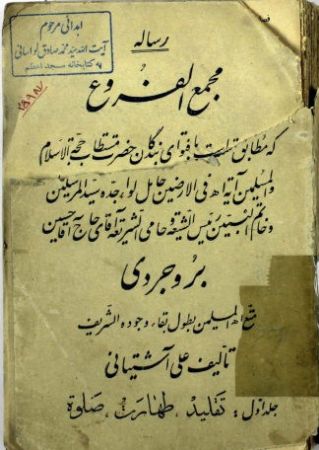 اهدائی مرحوم
آیت الله سید محمد صادق لواسانی
به کتابخانه مسجد اعظم
رساله
مجمع الفروع
که مطابق است با فتوای بندگان حضرت مستطاب حجة الاسلام
والمسلمین آیة الله فی الارضین حامل لواء جده سید المرسلین
و خاتم النبیین رئیس الشیعة حامی الشریعة آقای حاج آقا حسین
بروجردی
متع الله المسلمین بطول بقاء وجوده الشریف
تألیف علی آشتیانی
جلد اول: تقلید، طهارت، صلوة